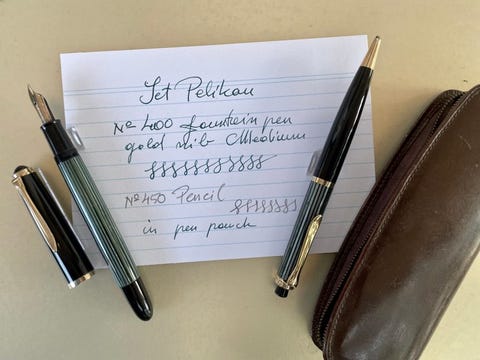 Set Pelikan
№ 400 fountain pen
gold nib Medium
№ 450 Pencil
in pen pouch